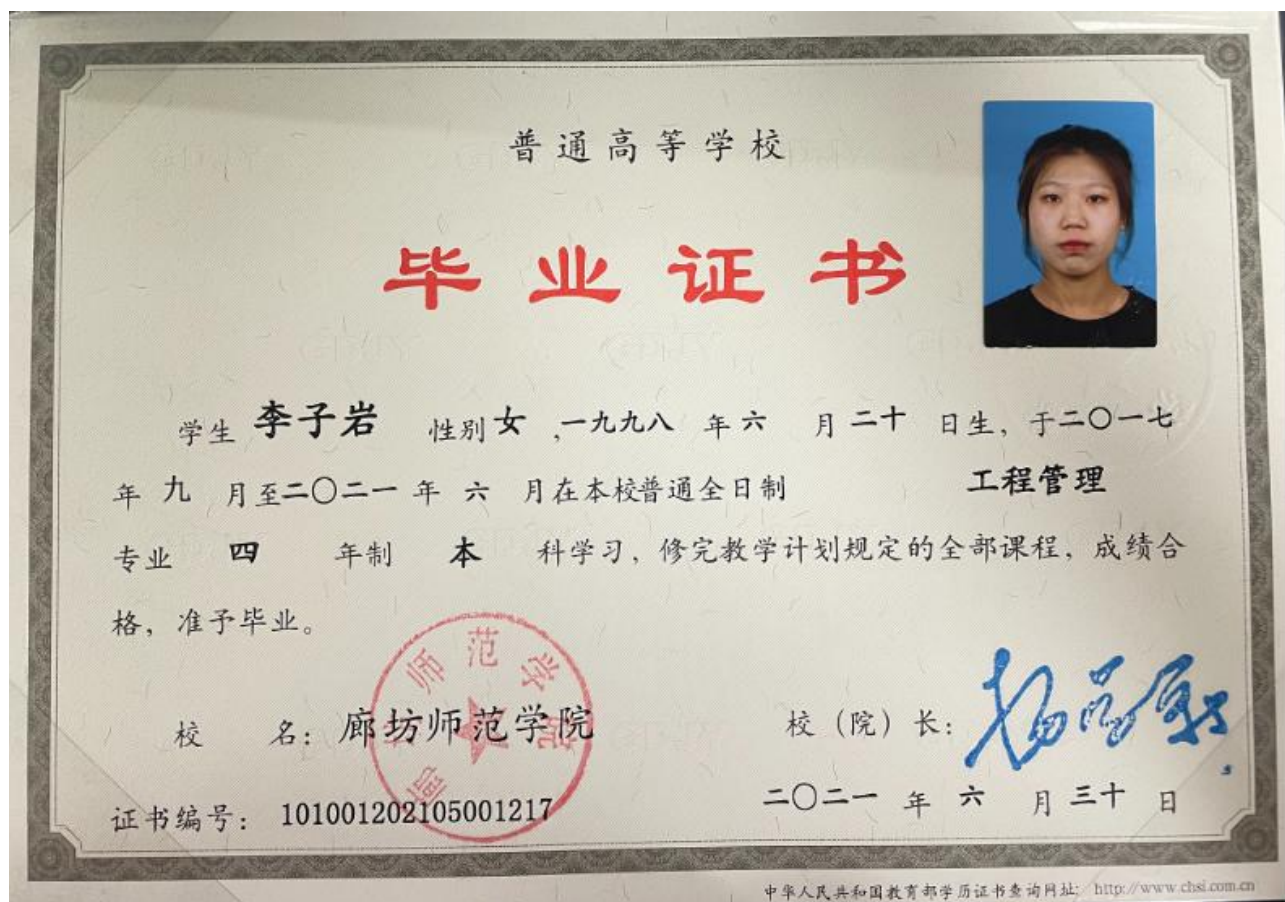 普通高等学校
毕业证书
学生 李子岩 性别 女 ,一九九八 年 六 月 二十 日生, 于二〇一七
年 九 月至二〇二一 年 六 月在本校普通全日制 工程管理
专业 四 年制 本 科学习, 修完教学计划规定的全部课程, 成绩合
格, 准予毕业。
校 名: 廊坊师范学院
校（院）长:
证书编号: 101001202105001217
二〇二一 年 六 月 三十 日
中华人民共和国教育部学历证书查询网址: http://www.chsi.com.cn